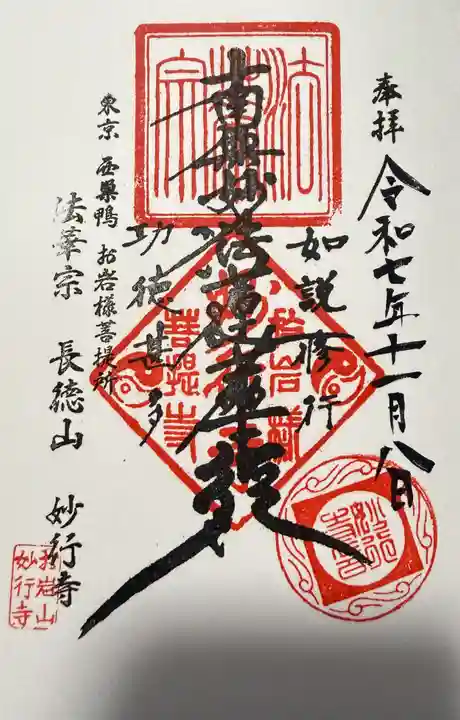 奉拝
令和七年十一月八日
如説修行
南無妙法蓮華経
功徳甚多
東京 西巣鴨 お岩様菩提所
法華宗 長徳山 妙行寺
法華宗
お岩様
菩提寺
妙行寺
長徳山
妙行寺